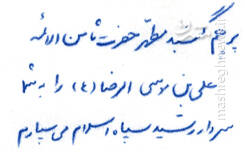 پرچم گنبد مطهر حضرت ثامن الائمه
علی بن موسی الرضا (ع) را به شما
سردار رشید سپاه اسلام می سپارم
mashreghnews.ir